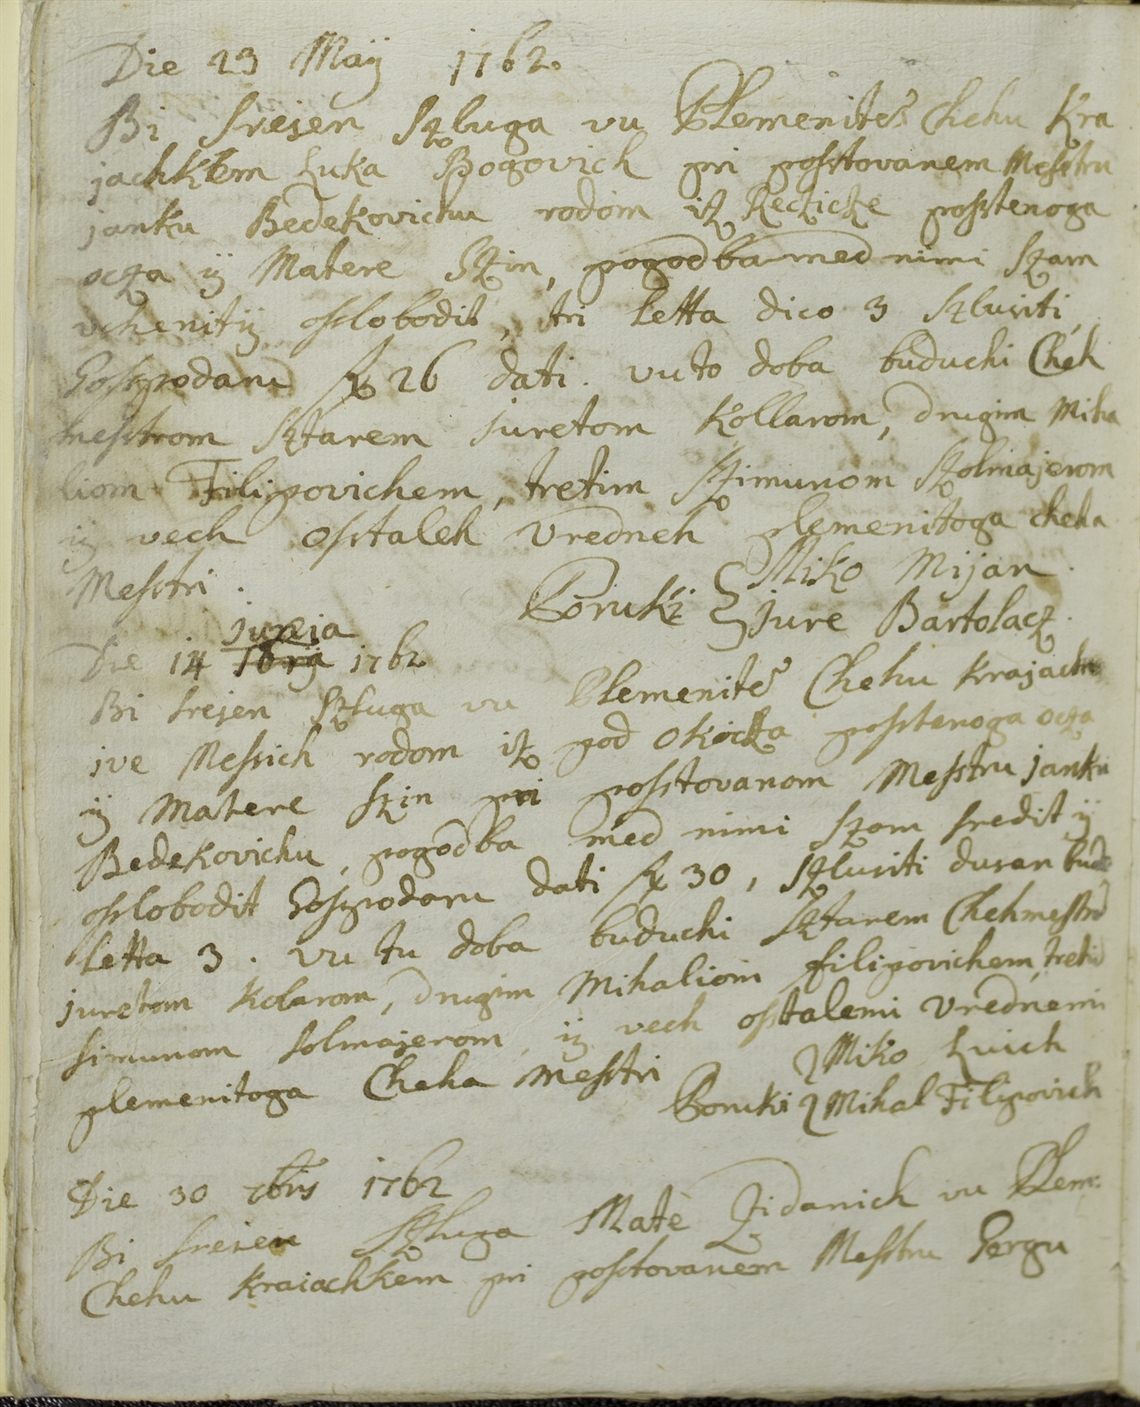 Die 23 Maij 1762.
Bi srejen szluga vu Plemenitē Chehu Kra
jachkem Luka Bogovich pri postovanem Messtru
janku Bedekovichu rodom iz Reczicze posstenoga
ocza ij Matere Szin, pogodba med nimi szam
vchenitij osslobodit, tri letta dico 3 szlusiti,
Gosspodaru fx 26 dati. vuto doba buduchi Cheh
messtrom sztarem juretom Kollarom, drugim Miha
liom Filipovichem, tretim szimunom szolmajerom
ij vech Ostaleh Vredneh plemenitoga cheha
Messtri. Miko Mijan.
Poruki jure Bartolacz.
junia
Die 14 7bra 1762
Bi srejen szluga vu Plemenitē Chehu krajachk
ive Messich rodom iz pod Okicha posstenoga ocza
ij Matere szin pri posstovanom Messtru janku
Bedekovichu, pogodba med nimi szam sredit ij
osslobodit Gospodaru dati fx 30, szlusiti dusan bude
letta 3. vu tu doba buduchi sztarem Chehmesstrō
juretom Kolarom, drugim Mihaliom filipovichem, treti
simunom solmajerom, ij vech ostalemi Vrednemi
plemenitoga Cheha messtri Miko Luich
Poruki Mihal Filipovich
Die 30 7bris 1762
Bi srejen szluga Mate Zidanich vu Plem:
Chehu kraiachkem pri posstovanem Messtru Gergu